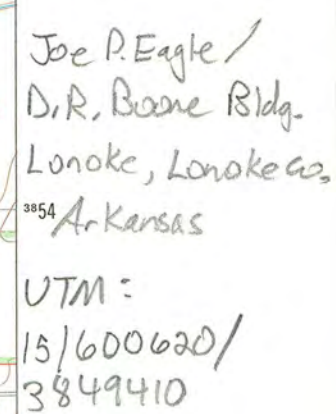 Joe P. Eagle /
D.R. Boone Bldg.
Lonoke, Lonoke Co,
3854 Arkansas
UTM:
15/600620/
3849410